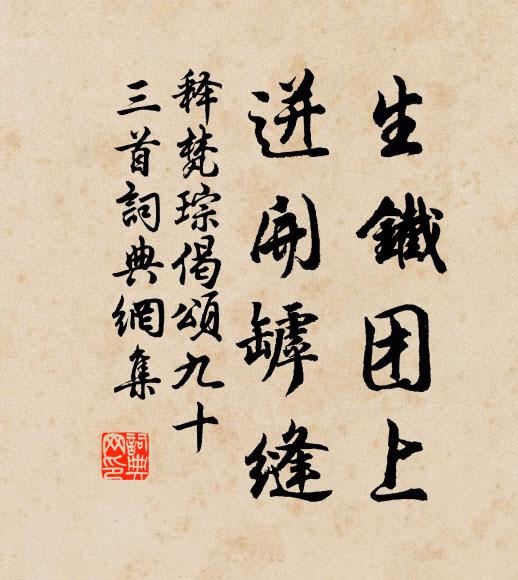 生鐵团上
迸開罅縫
释梵琮偈頌九十
三首詞典網集
詞典网印